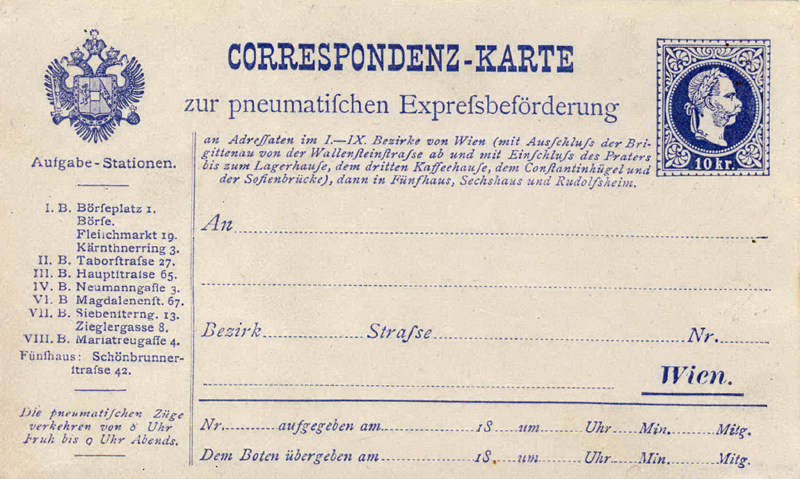 CORRESPONDENZ-KARTE
zur pneumatiſchen Expreſsbeförderung
an Adreſſaten im I.—IX. Bezirke von Wien (mit Ausſchluſs der Bri-
gittenau von der Wallenſteinſtraſse ab und mit Einſchluſs des Praters
bis zum Lagerhauſe, dem dritten Kaffeehauſe, dem Conſtantinhügel und
der Sofienbrücke), dann in Fünfhaus, Sechshaus und Rudolfsheim.
10 kr.
Aufgabe-Stationen.
I. B. Börſeplatz 1.
Börſe.
Fleiſchmarkt 19.
Kärnthnerring 3.
II. B. Taborſtraſse 27.
III. B. Hauptſtraſse 65.
IV. B. Neumanngaſſe 3.
VI. B Magdalenenſt. 67.
VII. B. Siebenſterng. 13.
Zieglergasse 8.
VIII. B. Mariatreugaſſe 4.
Fünfhaus: Schönbrunner-
ſtraſse 42.
Die pneumatiſchen Züge
verkehren von 8 Uhr
Früh bis 9 Uhr Abends.
An
Bezirk Straſse Nr.
Wien.
Nr. aufgegeben am 18 um Uhr Min. Mitg.
Dem Boten übergeben am 18 um Uhr Min. Mitg.